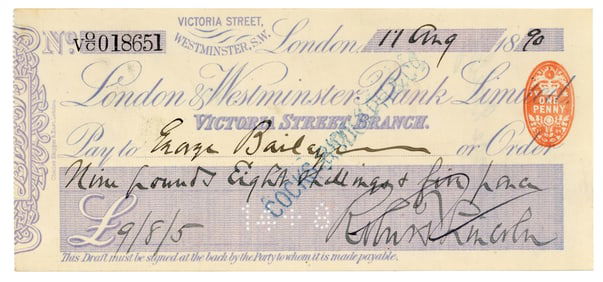 VICTORIA STREET,
WESTMINSTER, S.W.
No. V O/C 018651
London, 11 Aug 1890
London & Westminster Bank Limited,
VICTORIA STREET BRANCH.
ONE PENNY
Pay to George Bailey or Order
Nine pounds Eight shillings & five pence
£9/8/5
Robert Lincoln
This Draft must be signed at the back by the Party to whom it is made payable.
COCKS